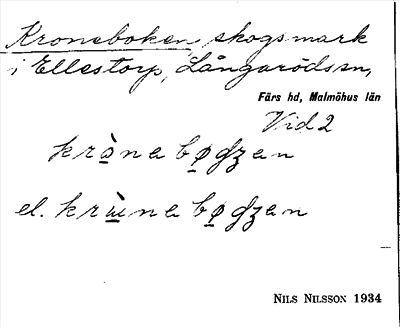 Kroneboken, skogsmark
i Ellestorp, Långarödssn,
Färs hd, Malmöhus län
Vid 2
kròna bøgzen
el. krùna bøgzen
NILS NILSSON 1934